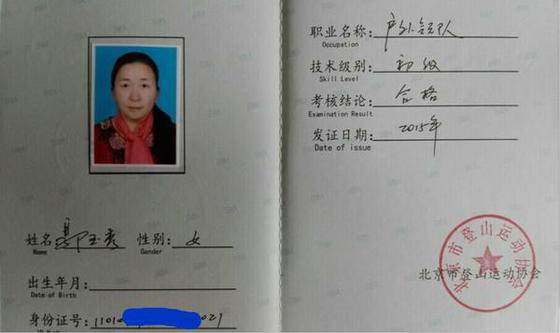 姓名 郭玉秀 性别: 女
Name Gender
出生年月:
Date of Birth
身份证号: 1101 021
职业名称: 户外领队
Occupation
技术级别: 初级
Skill Level
考核结论: 合格
Examination Result
发证日期: 2015年
Date of issue
北京市登山运动协会
北京市登山运动协会